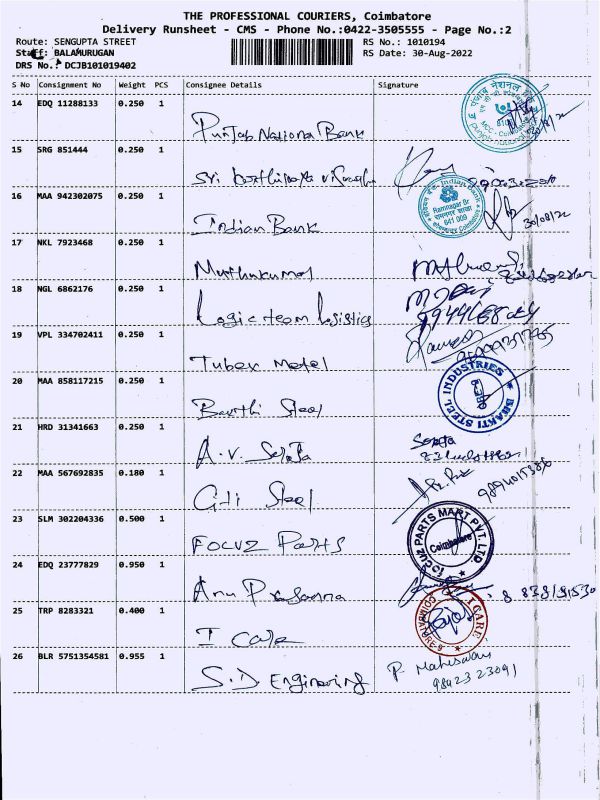 THE PROFESSIONAL COURIERS, Coimbatore
Delivery Runsheet - CMS - Phone No.:0422-3505555 - Page No.:2
Route: SENGUPTA STREET RS No.: 1010194
Staff: BALAMURUGAN RS Date: 30-Aug-2022
DRS No.: DCJB101019402
S No Consignment No Weight PCS Consignee Details Signature
14 EDQ 11288133 0.250 1
Punjab National Bank
15 SRG 851444 0.250 1
Sri
16 MAA 942302075 0.250 1
Indian Bank 30/08/22
Indian Bank
Ramnagar Br
641 009
Coimbatore
17 NKL 7923468 0.250 1
Muthukumar
18 NGL 6862176 0.250 1
Logic team Logistics
19 VPL 334702411 0.250 1
Tubex Metal
20 MAA 858117215 0.250 1
Barthi Steel
BHAKTI STEEL INDUSTRIES
21 HRD 31341663 0.250 1
A.V.
22 MAA 567692835 0.180 1
Giti Steel
23 SLM 302204336 0.500 1
Focuz Parts
FOCUZ PARTS MART PVT. LTD.
Coimbatore
24 EDQ 23777829 0.950 1
Anu Prasanna
25 TRP 8283321 0.400 1
I Care
I CARE
COIMBATORE-9
26 BLR 5751354581 0.955 1
S.D Enginering P. Maheswari
98423 23091